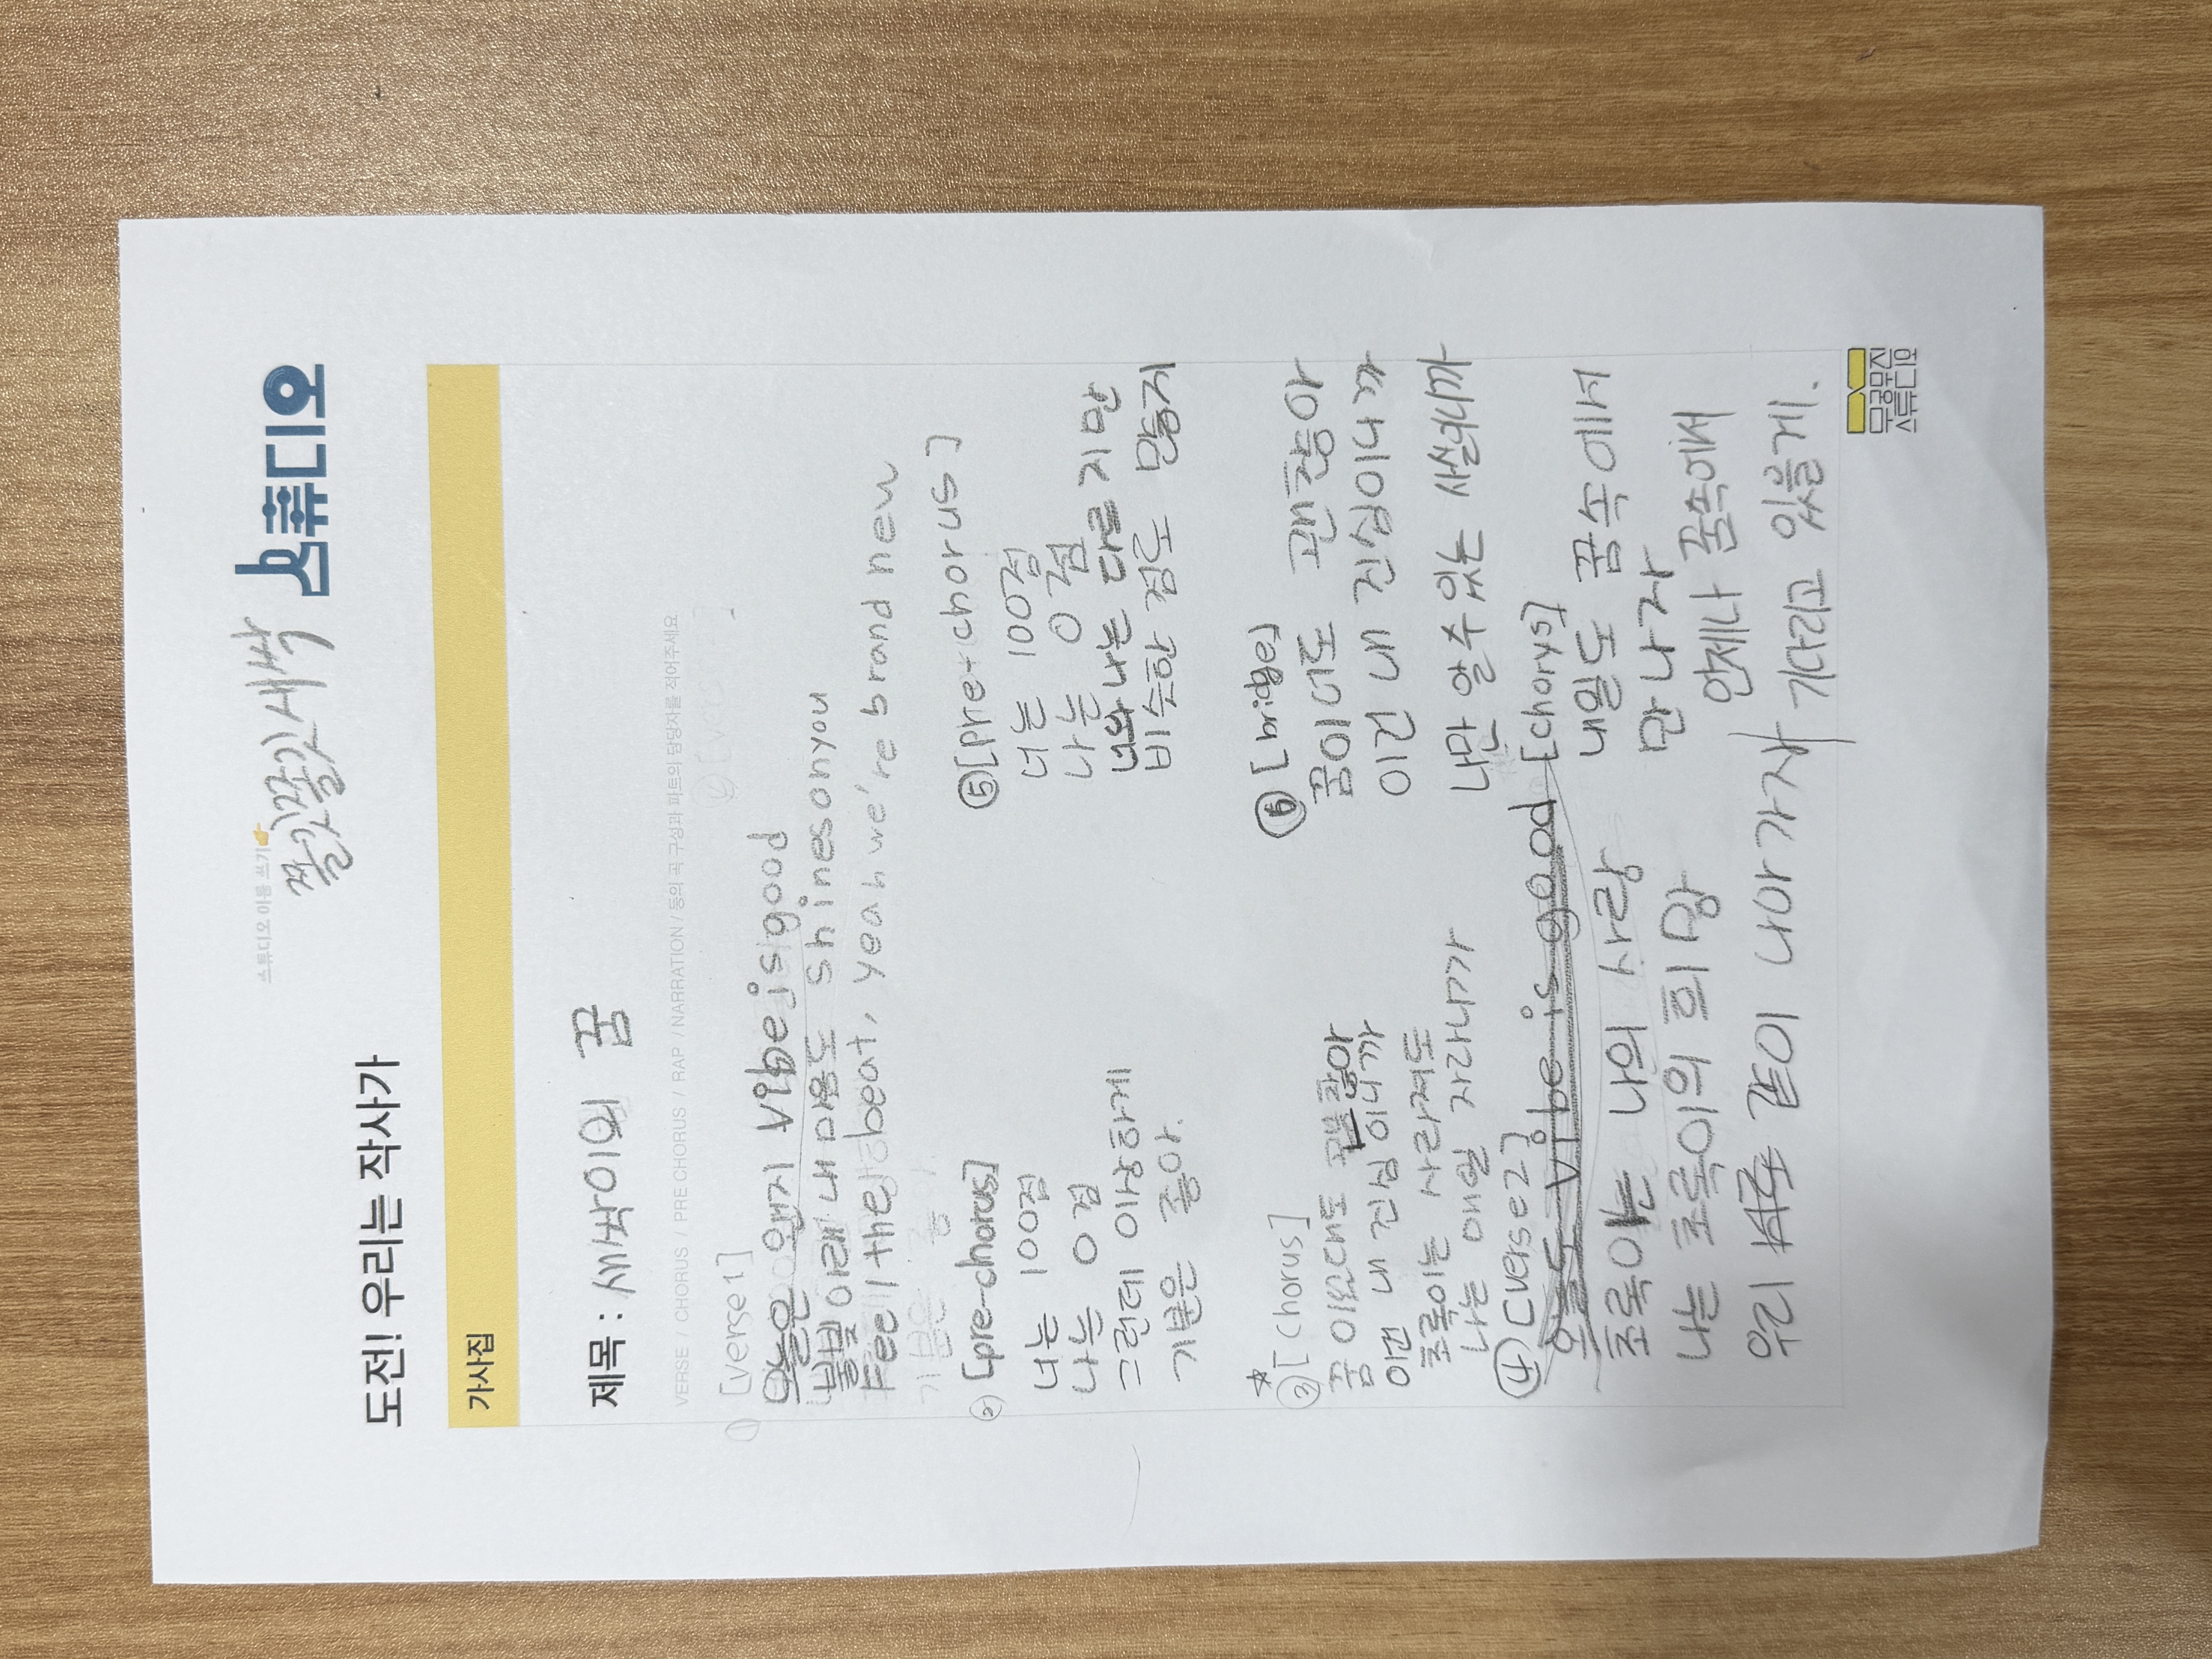 스튜디오 이름 쓰기👉
쫄깃쫄깃새싹 스튜디오
도전! 우리는 작사가
가사집
제목 : 새싹이의 꿈
VERSE / CHORUS / PRE CHORUS / RAP / NARRATION / 등의 곡 구성과 파트의 담당자를 적어주세요
① [verse1]
오늘은 왠지 vibe is good
불빛 아래 내 마음도 shines on you
Feel the beat, yeah we're brand new
② [pre-chorus]
너는 100점
나는 0점
그런데 이상하게
기분은 좋아.
*
③ [chorus]
꿈 이었대도 괜찮아
이건 내 진심이니까
초록이는 사라져도
나는 매일 자라나가
④ [verse2]
초록이는 나의 사랑
나는 초록이의 희망
우리 같이 나아가자
⑤ [pre-chorus]
너는 100점
나는 0점
너와 나는 다르지만
비슷한 점도 많은지
⑥ [bridge]
꿈이어도 괜찮아
이건 내 진심이니까
나만 알 수 있는 사실이니까
[chorys]
내일도 꿈속에서
만나자
언제나 꿈속에서
기다리고 있을게.
무궁뮤진
스튜디오